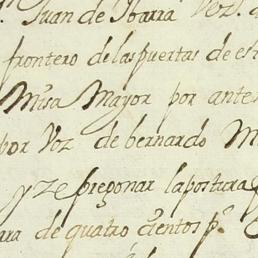 Juan de Ibarra Vez.
frontero de las puertas de es
Missa Mayor por ante
por Voz de bernardo M
yze pregonar la postura
ara de quatro çientos p.